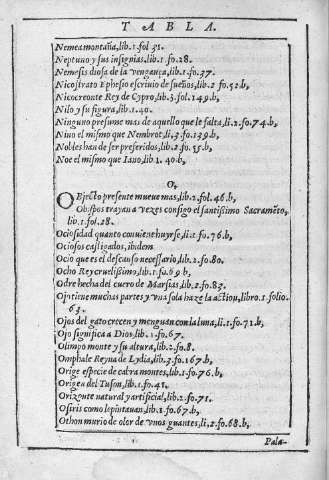 TABLA.
Nemea montaña, lib.1.fol 31.
Neptuno y sus insignias, lib.1.fo.28.
Nemesis diosa de la vengança, lib.1.fo.37.
Nicostrato Ephesio escriuio de sueños, lib.2 fo.52.b,
Nicocreonte Rey de Cypro, lib.3.fol.149.b,
Nilo y su figura, lib.1.40.
Ninguno presume mas de aquello que le falta, li.2.fo.74.b,
Nino el mismo que Nembrot, li.3.fo.139.b,
Nobles han de ser preferidos, lib.2.fo.55.b,
Noe el mismo que Iano, lib 1. 40.b,
O,
OBjecto presente mueue mas, lib.2.fol.46.b,
Obispos trayan a vezes consigo el santissimo Sacramẽto,
lib.1.fol.28.
Ociosidad quanto conviene huyrse, li.1.fo.76.b,
Ociosos castigados, ibidem
Ocio que es el descanso necessario, lib.2.fo.80.
Ocho Rey cruelissimo, lib.1.fo.69.b,
Odre hecha del cuero de Marsias, lib.2.fo.83.
Ojo tiene muchas partes y vna sola haze la action, libro.1.folio.
63.
Ojos del gato crecen y menguan con la luna, li.1.fo.71.b,
Ojo significa a Dios, lib.1.fo.67.
Olimpo monte y su altura, lib.2.fo.8.
Omphale Reyna de Lydia, lib.3.fo.167.b,
Orige especie de cabra montes, lib.1.fo.76.b,
Origen del Tuson, lib.1.fo.41.
Orizonte natural y artificial, lib.2.fo.71.
Osiris como lo pintauan, lib.1.fo.67.b,
Othon murio de olor de vnos guantes, li.2.fo.68.b,
Pala-